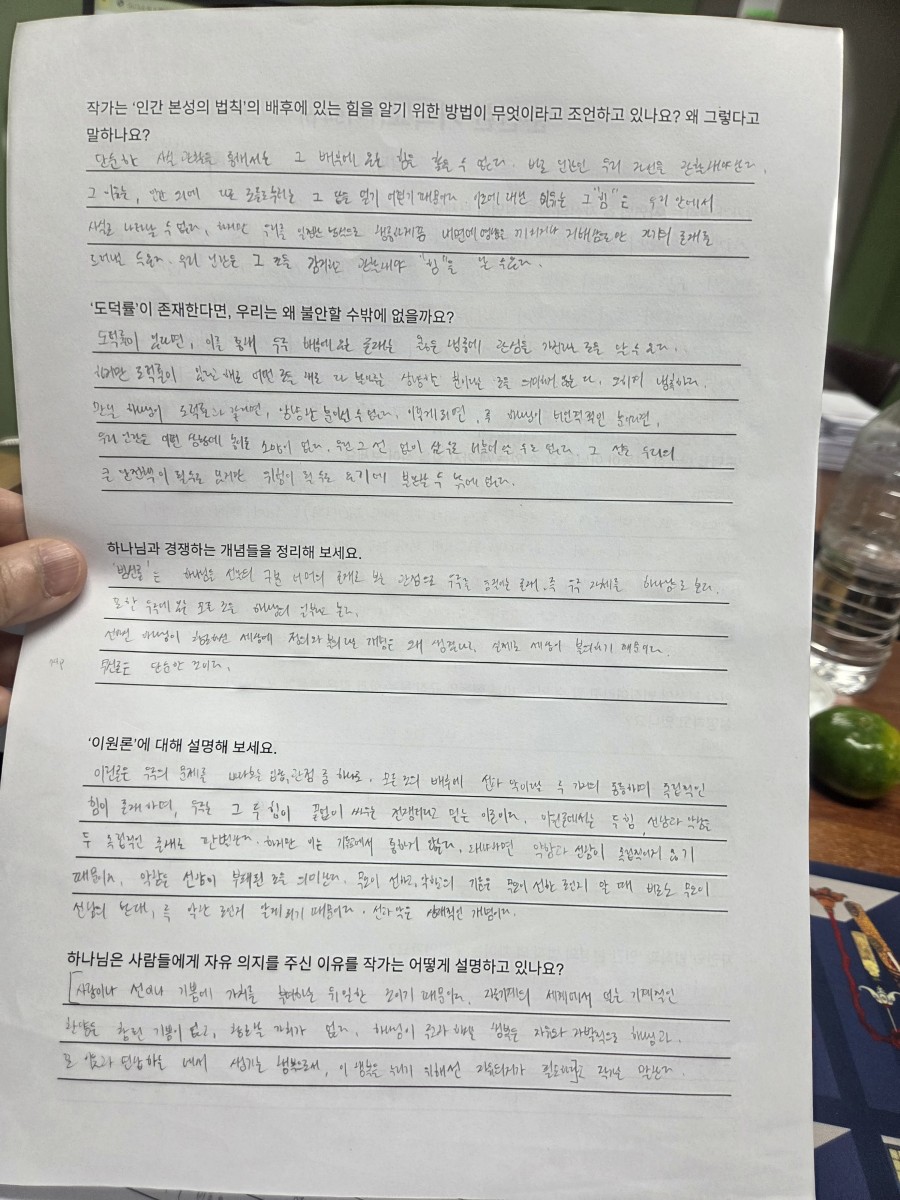 작가는 '인간 본성의 법칙'의 배후에 있는 힘을 알기 위한 방법이 무엇이라고 조언하고 있나요? 왜 그렇다고
말하나요?
단순한 사실 관찰을 통해서는 그 배후에 있는 힘을 찾을 수 없다. 바로 인간인 우리 자신을 관찰해야 한다.
그 이유는, 인간 외에 다른 그 답을 얻기 어렵기 때문이다. 그 "힘"은 우리 안에서
사실로 나타날 수 없다. 하지만 우리를 일정한 방식으로 행동하게끔 내면에 영향을 끼치거나 지배함으로만 자기의 존재를
드러낼 수 있다. 우리 인간은 그 관찰해야 "힘"을 알 수 있다.
'도덕률'이 존재한다면, 우리는 왜 불안할 수밖에 없을까요?
도덕률이 있다면, 이를 통해 우주 배후에 있는 존재는 옳은 행동에 관심을 가진다는 것을 알 수 있다.
하지만 도덕률이 있다고 해도 어떤 것을 봐주는 분이라는 것을 의미하지 않는다. 오히려 냉혹하다.
만일 하나님이 도덕률과 같다면, 분이실 수 없다. 이렇게 되면, 즉 하나님이 비인격적인 존재라면,
우리 인간은 어떤 상황에 놓이든 소용이 없다. 우린 그 선 없이 살 수도 없다. 그 선은 우리의
큰 안전책이 될 수도 있지만 위험이 될 수도 있기에 불안할 수 밖에 없다.
하나님과 경쟁하는 개념들을 정리해 보세요.
'범신론'은 하나님을 선악의 구분 너머의 존재로 보는 관점으로 우주를 움직이는 존재, 즉 우주 자체를 하나님으로 본다.
또한 우주에 있는 모든 것을 하나님의 일부로 본다.
선하신 하나님이 창조하신 세상에 정의와 불의라는 개념은 왜 생겼나, 실제로 세상이 불의하기 때문이다.
무신론은 단순한 것이다.
'이원론'에 대해 설명해 보세요.
이원론은 우주의 문제를 바라보는 입장, 관점 중 하나로, 모든 것의 배후에 선과 악이라는 두 가지 동등하며 독립적인
힘이 존재하며, 우주는 그 두 힘이 끝없이 싸우는 전쟁터라고 믿는 이론이다. 이원론에서는 두 힘, 선함과 악함을
두 독립적인 존재로 판단한다. 하지만 이는 기독교에서 통하지 않는다. 왜냐하면 악함과 선함이 독립적이지 않기
때문이다. 악함은 선함이 부패된 것을 의미한다. 무엇이 선하고, 악함의 기준은 무엇이 선한 것인지 알 때 비로소 무엇이
선함의 반대, 즉 악한 것인지 알게 되기 때문이다. 선과 악은 상대적인 개념이다.
하나님은 사람들에게 자유 의지를 주신 이유를 작가는 어떻게 설명하고 있나요?
사랑이나 선이나 기쁨에 가치를 부여하는 유일한 것이기 때문이다. 자동기계의 세계에서 얻는 기계적인
참된 기쁨이 없고, 창조할 가치가 없다. 하나님이 주고자 하신 행복은 자유와 자발적으로 하나님과
또 이웃과 연합하는 데에서 생기는 행복으로서, 이 행복을 누리기 위해선 자유의지가 필요하다고 작가는 말한다.